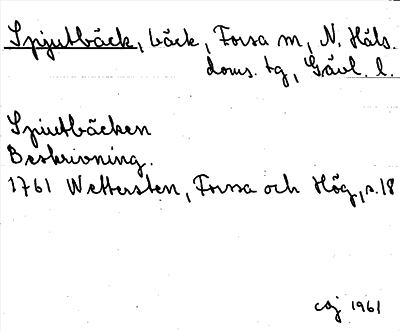 Spjutbäck, bäck, Forsa sn, N. Häls.
doms. tg, Gävl. l.
Spiutbäcken
Beskrivning.
1761 Wettersten, Forssa och Hög, s. 18
caj 1961